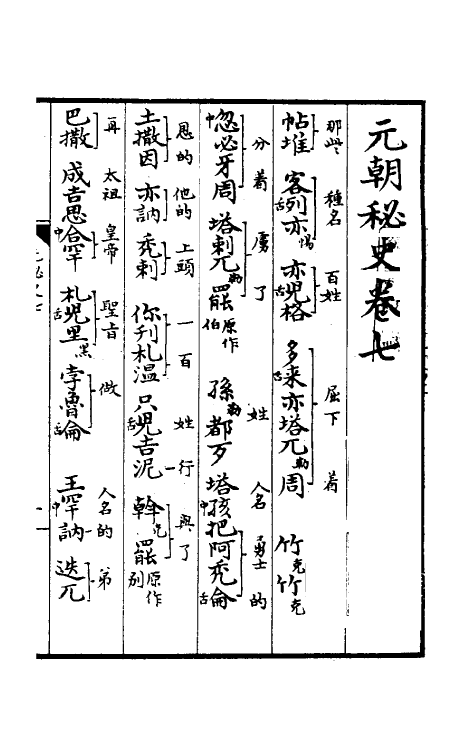 元朝秘史卷七
那些 種名 百姓 屈下 着
帖堆 客舌列亦惕 亦舌兒格 多舌来亦塔兀勒周 竹克竹克
分着 虜了 姓 人名 勇士的
中忽必牙周 塔剌兀勒罷原作伯 孫勒都歹 塔中孩把阿禿舌侖
恩的 他的 上頭 一百 姓行 與了
土撒因 亦訥 禿剌 你刊札温 只舌兒吉泥 斡乞罷原作别
再 太祖 皇帝 聖旨 做 人名的 弟
巴撒 成吉思中合罕 札舌兒里黑 孛魯舌侖 王中罕訥 迭兀